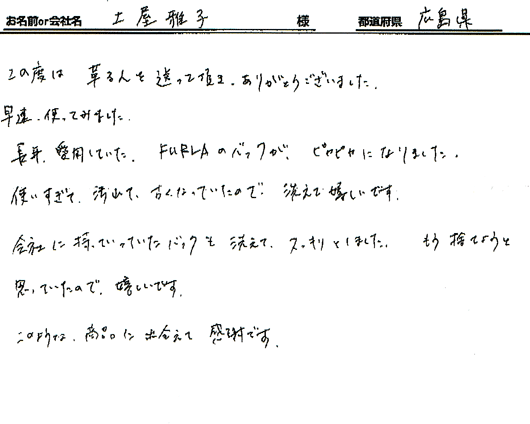 お名前or会社名 土屋雅子 様 都道府県 広島県
この度は 革るんを送って頂き、ありがとうございました。
早速、使ってみました。
長年、愛用していた、FURLAのバックが、ピカピカになりました。
使いすぎて、汚れて、古くなっていたので 洗えて嬉しいです。
会社に持っていっていたバックも洗えて、スッキリとしました。 もう捨てようと
思っていたので、嬉しいです。
このような、商品に出会えて 感謝です。